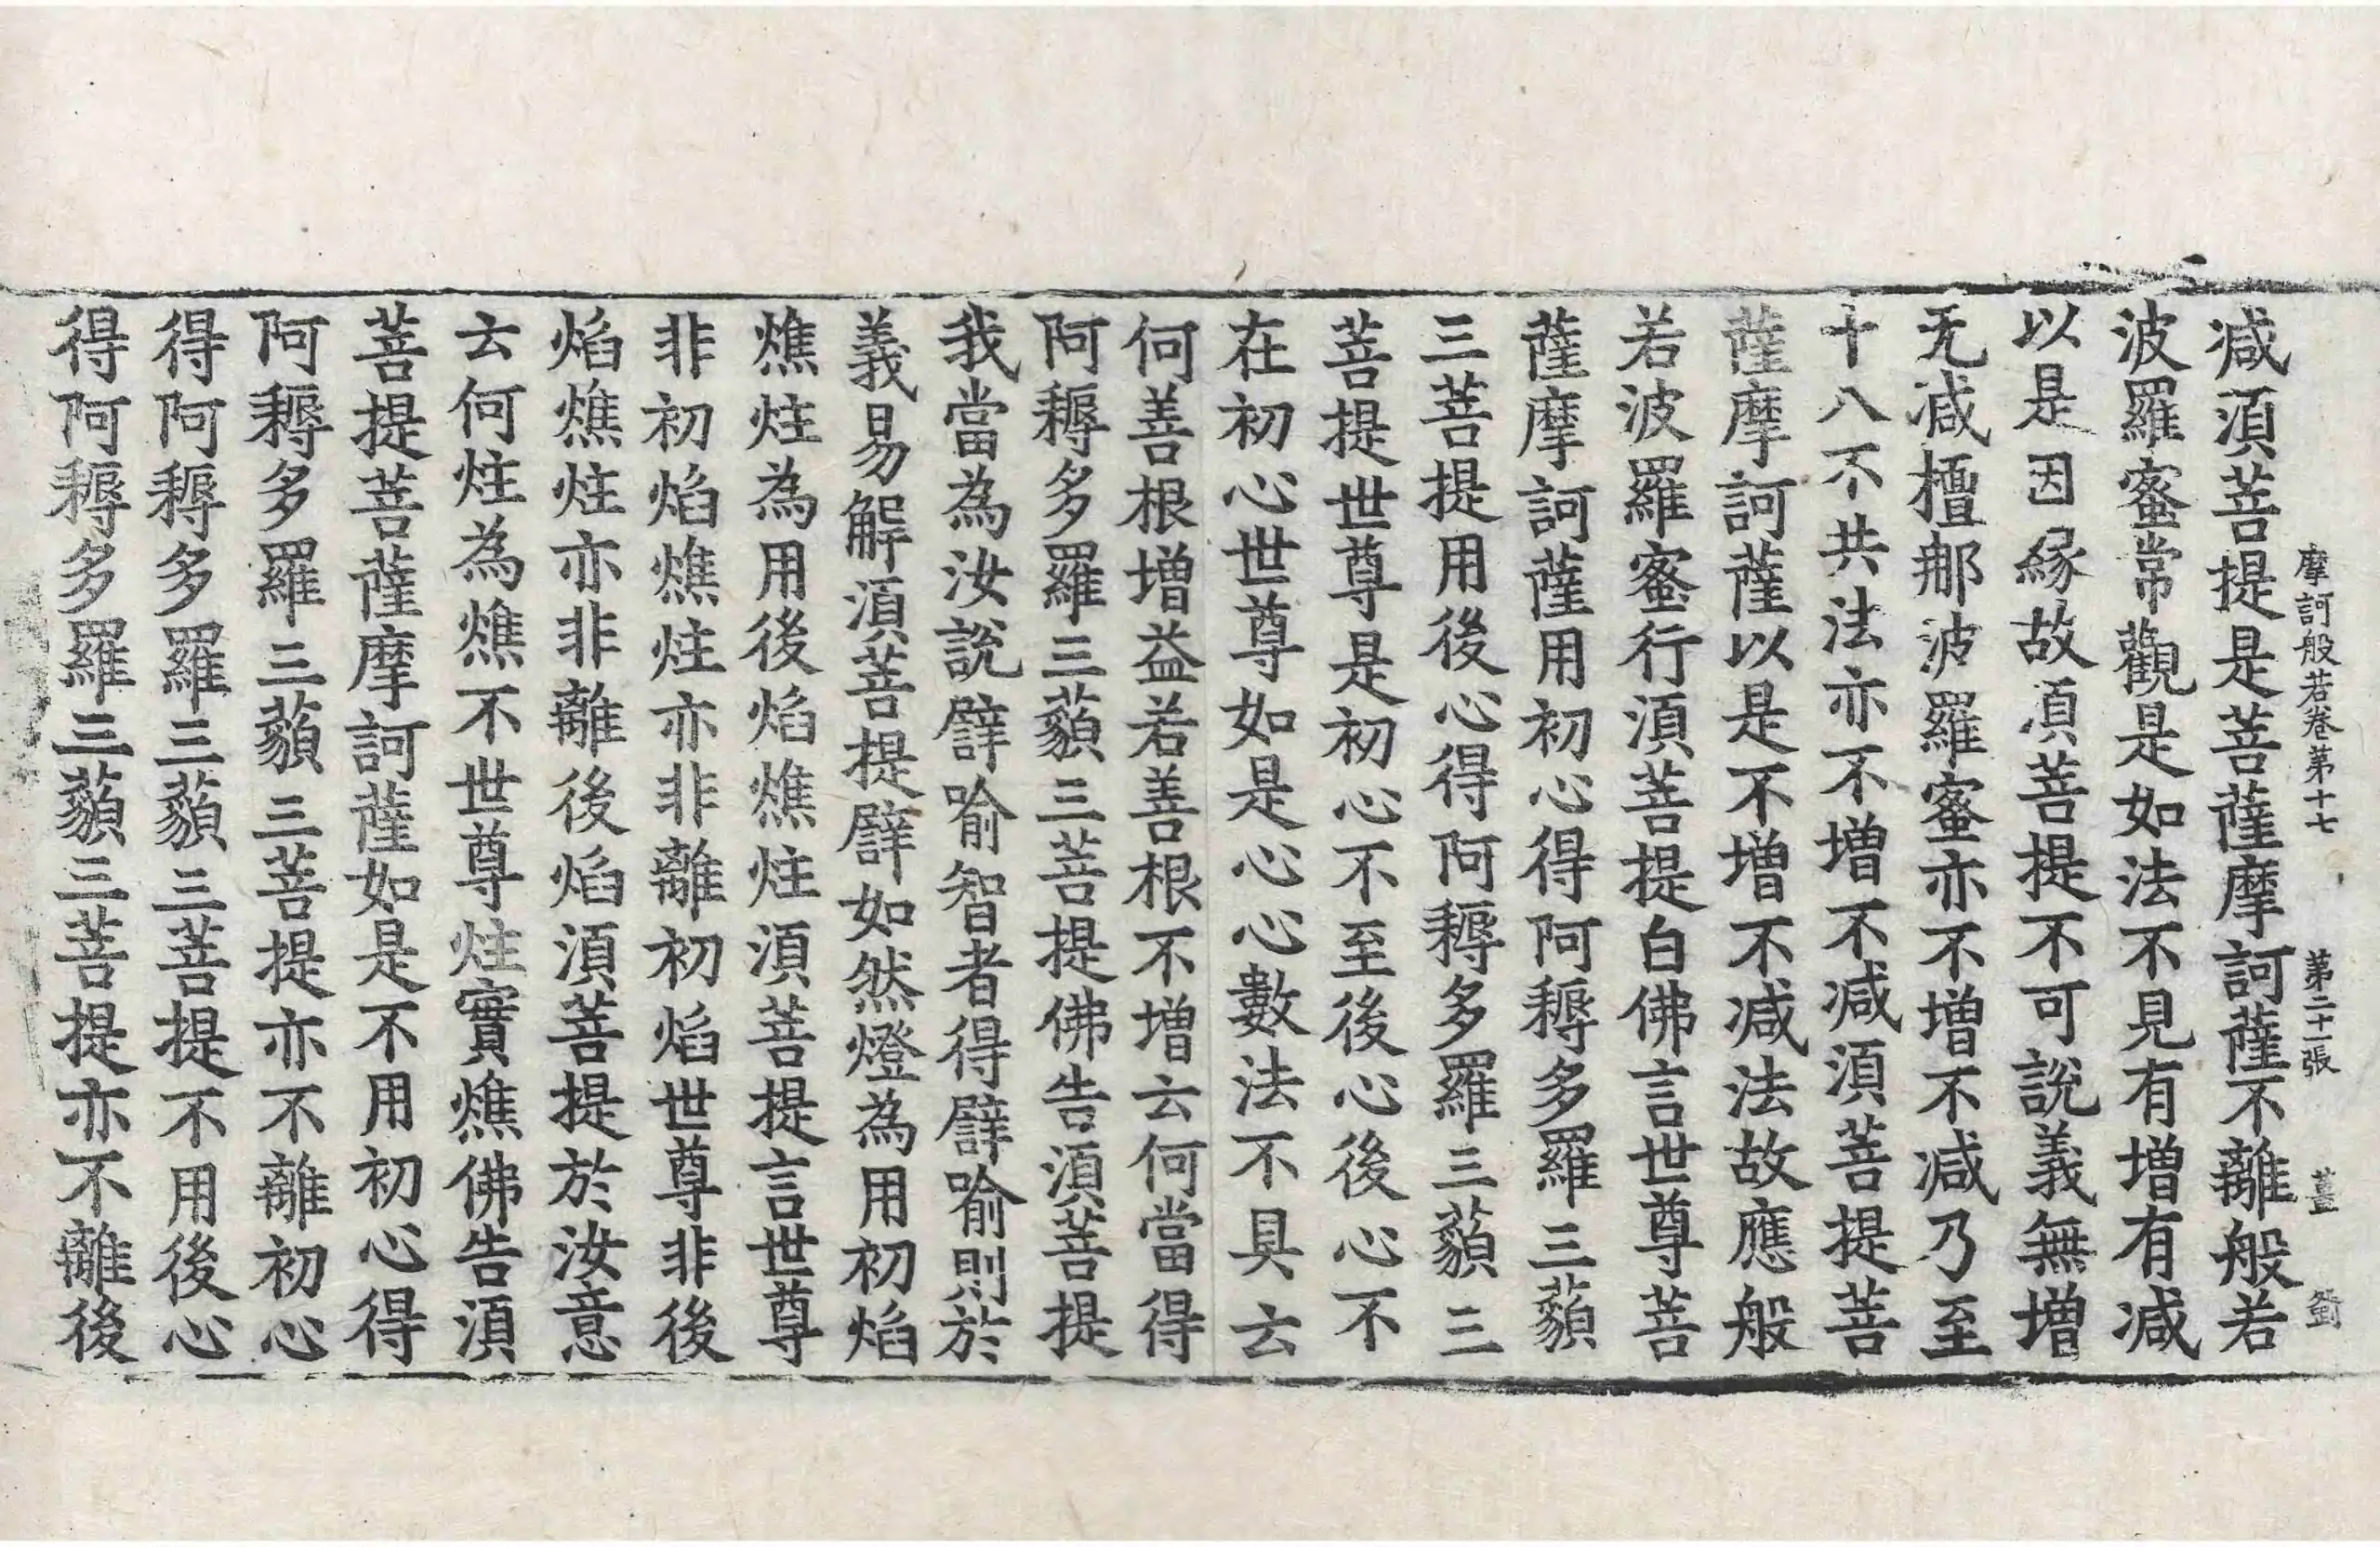 摩訶般若卷第十七 第二十一張 薑
減須菩提是菩薩摩訶薩不離般若
波羅蜜常觀是如法不見有增有減
以是因緣故須菩提不可說義無增
无減檀那波羅蜜亦不增不減乃至
十八不共法亦不增不減須菩提菩
薩摩訶薩以是不增不減法故應般
若波羅蜜行須菩提白佛言世尊菩
薩摩訶薩用初心得阿耨多羅三藐
三菩提用後心得阿耨多羅三藐三
菩提世尊是初心不至後心後心不
在初心世尊如是心心數法不具云
何善根增益若善根不增云何當得
阿耨多羅三藐三菩提佛告須菩提
我當為汝說譬喻智者得譬喻則於
義易解須菩提譬如然燈為用初焰
燋炷為用後焰燋炷須菩提言世尊
非初焰燋炷亦非離初焰世尊非後
焰燋炷亦非離後焰須菩提於汝意
云何炷為燋不世尊炷實燋佛告須
菩提菩薩摩訶薩如是不用初心得
阿耨多羅三藐三菩提亦不離初心
得阿耨多羅三藐三菩提不用後心
得阿耨多羅三藐三菩提亦不離後